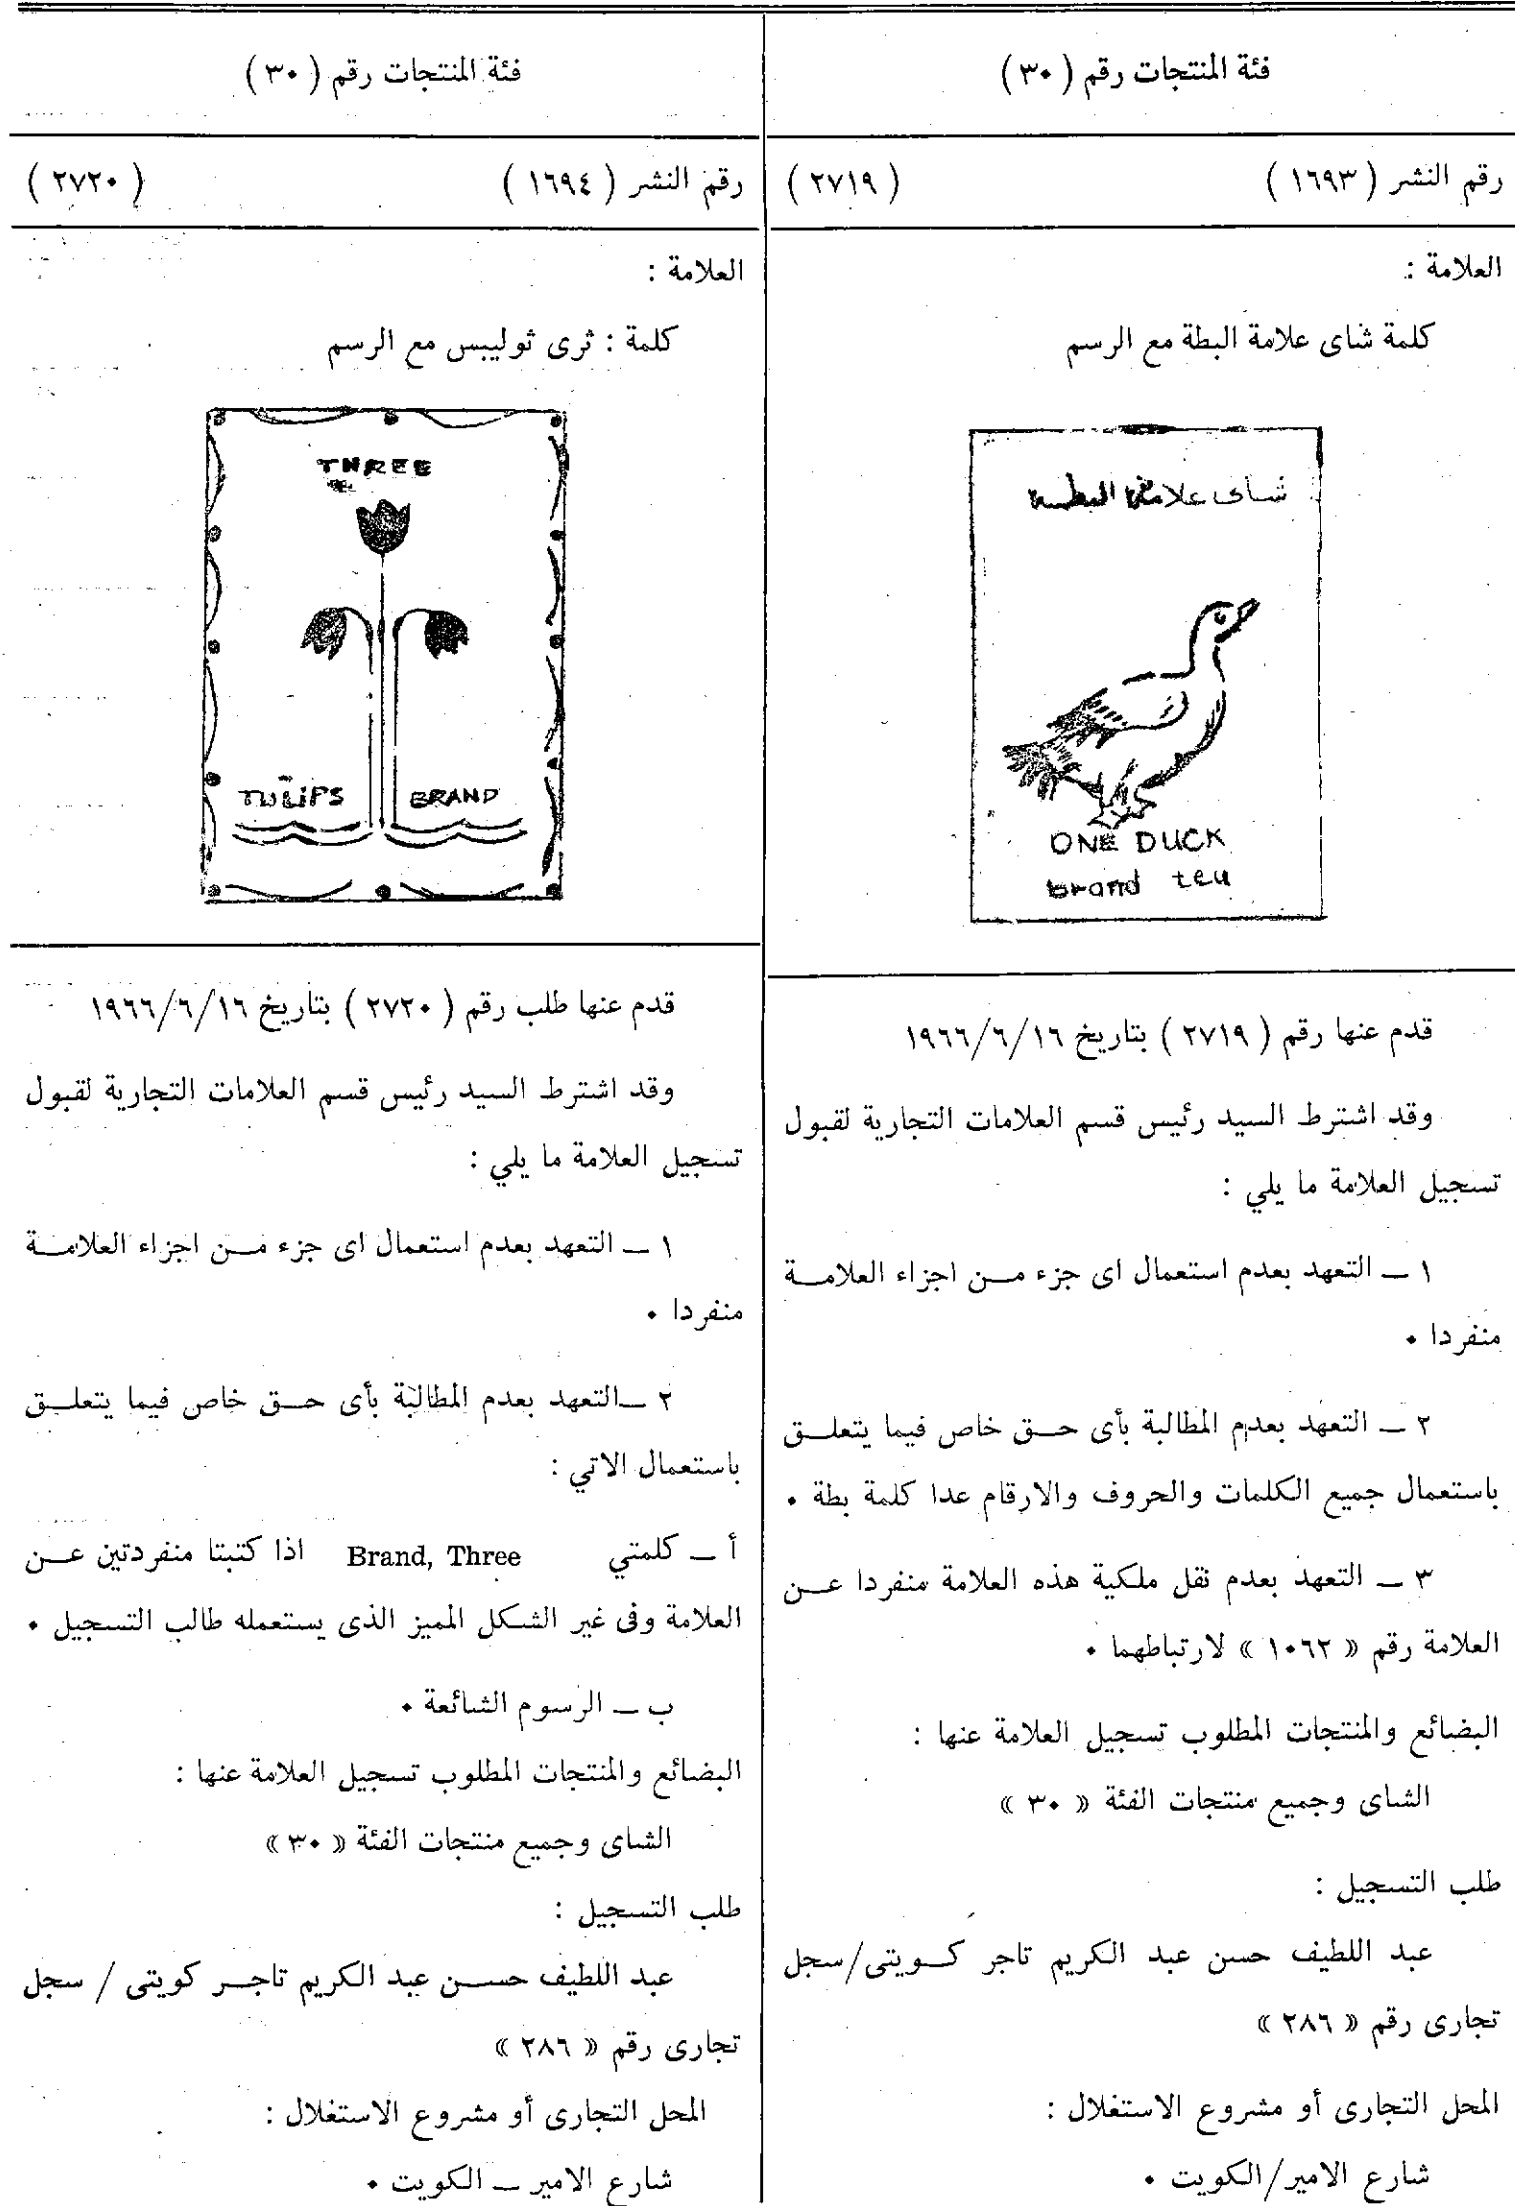 فئة المنتجات رقم ( ٣٠ )
رقم النشر ( ١٦٩٣ ) ( ٢٧١٩ )
العلامة :
كلمة شاى علامة البطة مع الرسم
شاى علامة البطة
ONE DUCK
brand tea
قدم عنها رقم ( ٢٧١٩ ) بتاريخ ١٩٦٦/٦/١٦
وقد اشترط السيد رئيس قسم العلامات التجارية لقبول
تسجيل العلامة ما يلي :
١ ــ التعهد بعدم استعمال اى جزء مـــن اجزاء العلامـــة
منفردا ٠
٢ ــ التعهد بعدم المطالبة بأى حـــق خاص فيما يتعلـــق
باستعمال جميع الكلمات والحروف والارقام عدا كلمة بطة ٠
٣ ــ التعهد بعدم نقل ملكية هذه العلامة منفردا عـــن
العلامة رقم « ١٠٦٢ » لارتباطهما ٠
البضائع والمنتجات المطلوب تسجيل العلامة عنها :
الشاى وجميع منتجات الفئة « ٣٠ »
طلب التسجيل :
عبد اللطيف حسن عبد الكريم تاجر كـــويتى/سجل
تجارى رقم « ٢٨٦ »
المحل التجارى أو مشروع الاستغلال :
شارع الامير/الكويت ٠
فئة المنتجات رقم ( ٣٠ )
رقم النشر ( ١٦٩٤ ) ( ٢٧٢٠ )
العلامة :
كلمة : ثرى ثوليبس مع الرسم
THREE
TULIPS BRAND
قدم عنها طلب رقم ( ٢٧٢٠ ) بتاريخ ١٩٦٦/٦/١٦
وقد اشترط السيد رئيس قسم العلامات التجارية لقبول
تسجيل العلامة ما يلي :
١ ــ التعهد بعدم استعمال اى جزء مـــن اجزاء العلامـــة
منفردا ٠
٢ ــالتعهد بعدم المطالبة بأى حـــق خاص فيما يتعلـــق
باستعمال الاتي :
أ ــ كلمتي Brand, Three اذا كتبتا منفردتين عـــن
العلامة وفى غير الشكل المميز الذى يستعمله طالب التسجيل ٠
ب ــ الرسوم الشائعة ٠
البضائع والمنتجات المطلوب تسجيل العلامة عنها :
الشاى وجميع منتجات الفئة « ٣٠ »
طلب التسجيل :
عبد اللطيف حســـن عبد الكريم تاجـــر كويتى / سجل
تجارى رقم « ٢٨٦ »
المحل التجارى أو مشروع الاستغلال :
شارع الامير ــ الكويت ٠